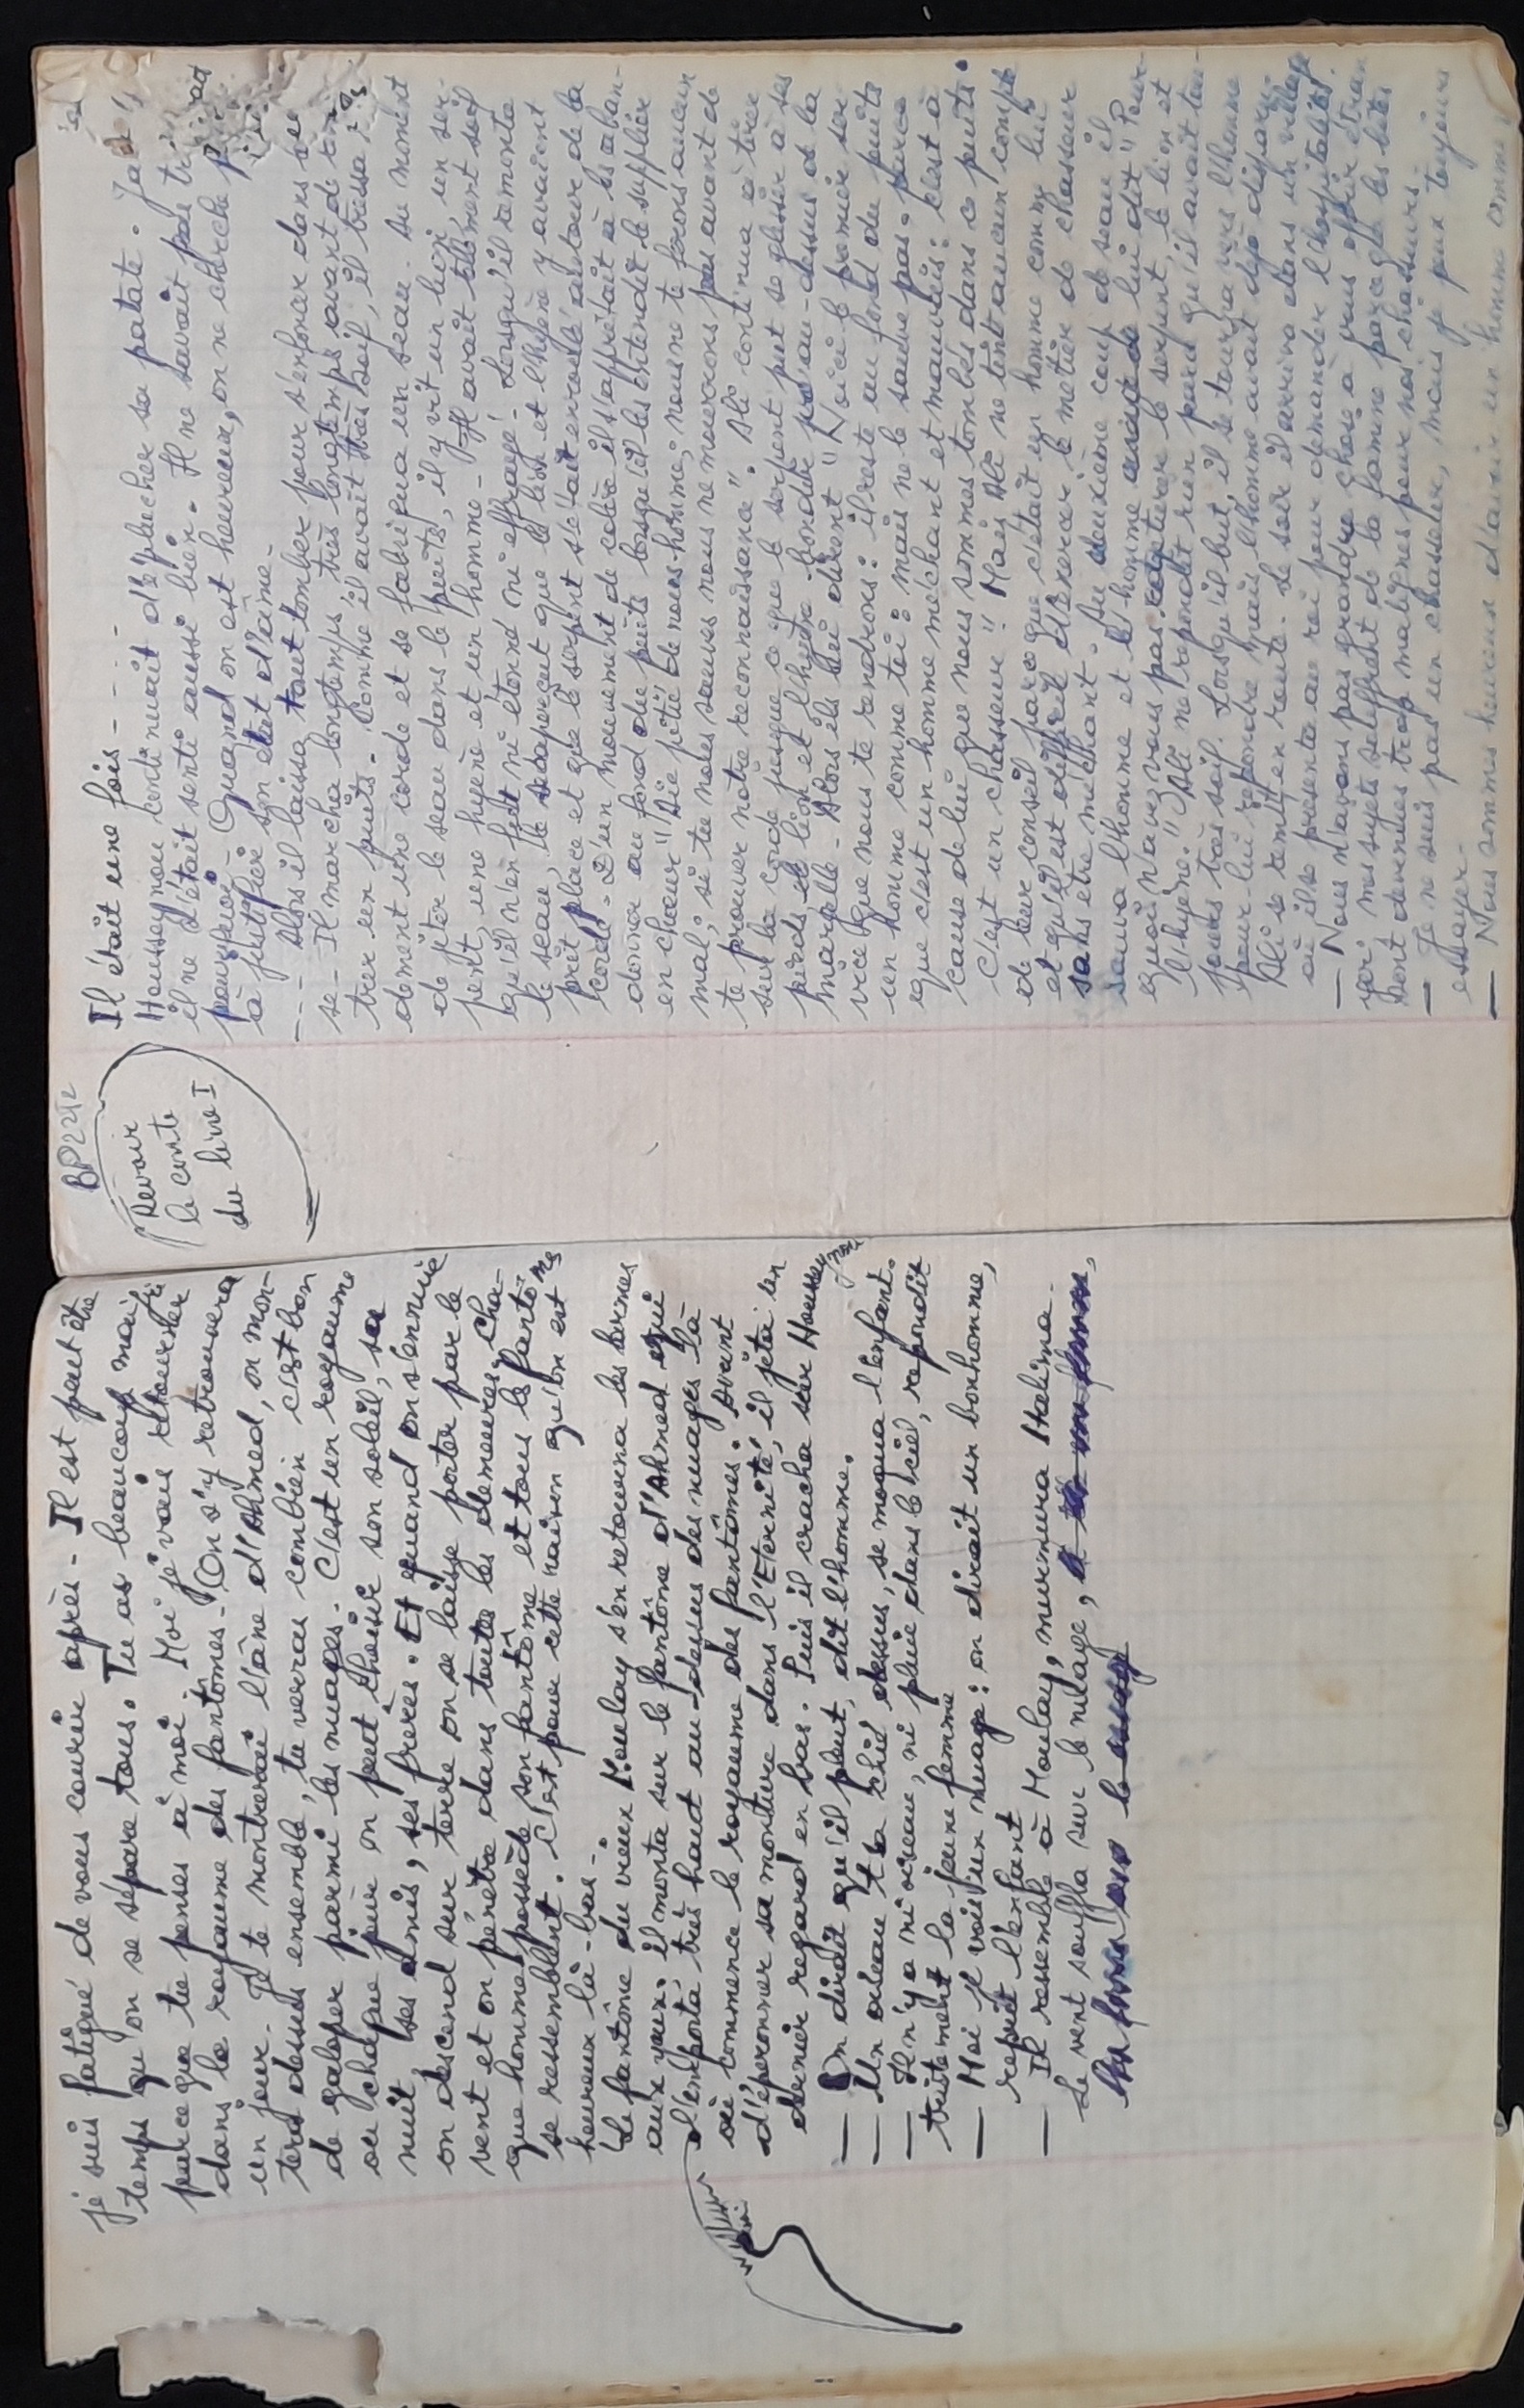 je suis fatigué de vous courir après - Il est peut être
temps qu'on se sépare tous. Tu as beaucoup maigri
parce que tu penses à moi. Moi je vais retourner
dans le royaume des fantômes - On s'y retrouvera
un jour - Je te montrerai l'âne d'Ahmed, on mon-
tera dessus ensemble, tu verras combien c'est bon
de galoper parmi les nuages. C'est un royaume
où chaque jour on peut choisir son soleil, sa
nuit, ses amis, ses frères. Et quand on s'ennuie
on descend sur terre on se laisse porter par le
vent et on pénètre dans toutes les demeures. Cha-
que homme possède son fantôme et tous les fantômes
se ressemblent. C'est pour cette raison qu'on est
heureux là-bas -
Le fantôme du vieux Moulay s'en retourna les larmes
aux yeux. il monta sur le fantôme d'Ahmed qui
l'emporta, très haut au-dessus des nuages là
où commence le royaume des fantômes. Avant
d'éperonner sa monture dans l'Eternité, il jeta un
dernier regard en bas. Puis il cracha sur Housseynou
— On dirait qu'il pleut, dit l'homme.
— Un oiseau t'a chié dessus, se moqua l'enfant.
— Il n'y a ni oiseau, ni pluie dans le ciel, répondit
tristement la jeune femme
— Moi je vois un nuage : on dirait un bonhomme,
reprit l'enfant
— Il ressemble à Moulay, murmura Halima -
Le vent souffla sur le nuage,
BP 2212
Revoir
le conte
du livre I
Il était une fois - - - -
Housseynou continuait d'éplucher sa patate.
il ne s'était senti aussi bien. Il ne savait pas
pourquoi - Quand on est heureux, on ne cherche
à justifier son état d'âme -
- - - Alors il laissa tout tomber pour s'enfoncer dans
se - Il marcha longtemps, très longtemps avant de
trer un puits. Comme il avait très soif, il tressa
dement une corde et se fabriqua un seau. Au moment
de jeter le seau dans le puits, il y vit un lion, un ser-
pent, une hyène et un homme - Il avait tellement soif
qu'il n'en fut ni étonné ni effrayé. Lorsqu'il remonta
le seau, il s'aperçut que le lion et l'hyène y avaient
pris place et que le serpent s'était enroulé autour de la
corde. D'un mouvement de colère il s'apprêtait à les aban-
donner au fond du puits lorsqu'il les entendit le supplier
en chœur " Aie pitié de nous homme, nous ne te ferons aucun
mal ; si tu nous sauves nous ne mourrons pas avant de
te prouver notre reconnaissance". Ali continua à tirer
sur la corde jusque ce que le serpent put se glisser à ses
pieds et le lion et l'hyène bondir par au-dessus de la
margelle - Alors ils lui dirent " Voici le premier ser-
vice que nous te rendrons : il reste au fond du puits
un homme comme toi : mais ne le sauve pas. parce
que c'est un homme méchant et mauvais : c'est à
cause de lui que nous sommes tombés dans ce puits.
C'est un chasseur " Mais Ali ne tint aucun compte
de leur conseil parce que c'était un homme comme lui
et qu'il est difficile d'exercer le métier de chasseur
sans être méchant. Au deuxième coup de seau il
sauva l'homme et l'homme lui dit " Pour-
quoi n'avez vous pas le serpent, le lion et
l'hyène." Ali ne répondit rien parce qu'il avait tou-
jours très soif. Lorsqu'il but, il se tourna vers l'homme
pour lui répondre mais l'homme avait déjà disparu.
Ali se remit en route. Le soir il arriva dans un village
où il se présenta au roi pour demander l'hospitalité.
— Nous n'avons pas grandre chose à vous offrir étran
ger mes sujets souffrent de la famine parce que les bêtes
sont devenues trop malignes pour nos chasseurs.
— Je ne suis pas un chasseur, mais je peux toujours
essayer -
— Nous sommes heureux d'avoir un homme comme